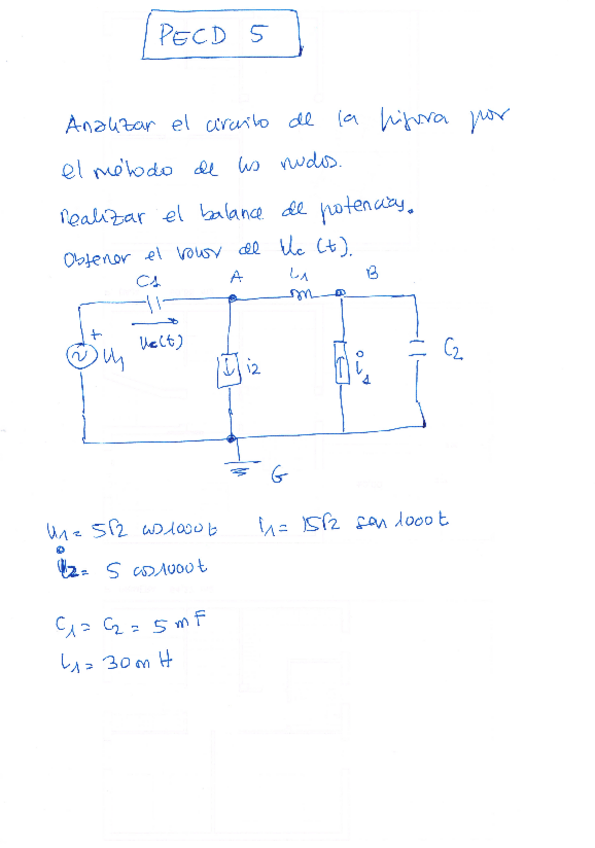 PECD 5
Analizar el circuito de la figura por
el método de los nudos.
Realizar el balance de potencias.
Obtener el valor del Uc (t).
C1 A L1 B
+ U1 Uc(t) i2 i1 C2
G
U1 = 5√2 cos1000t i1 = 15√2 sen 1000t
i2 = 5 cos1000t
C1 = C2 = 5 mF
L1 = 30 m H